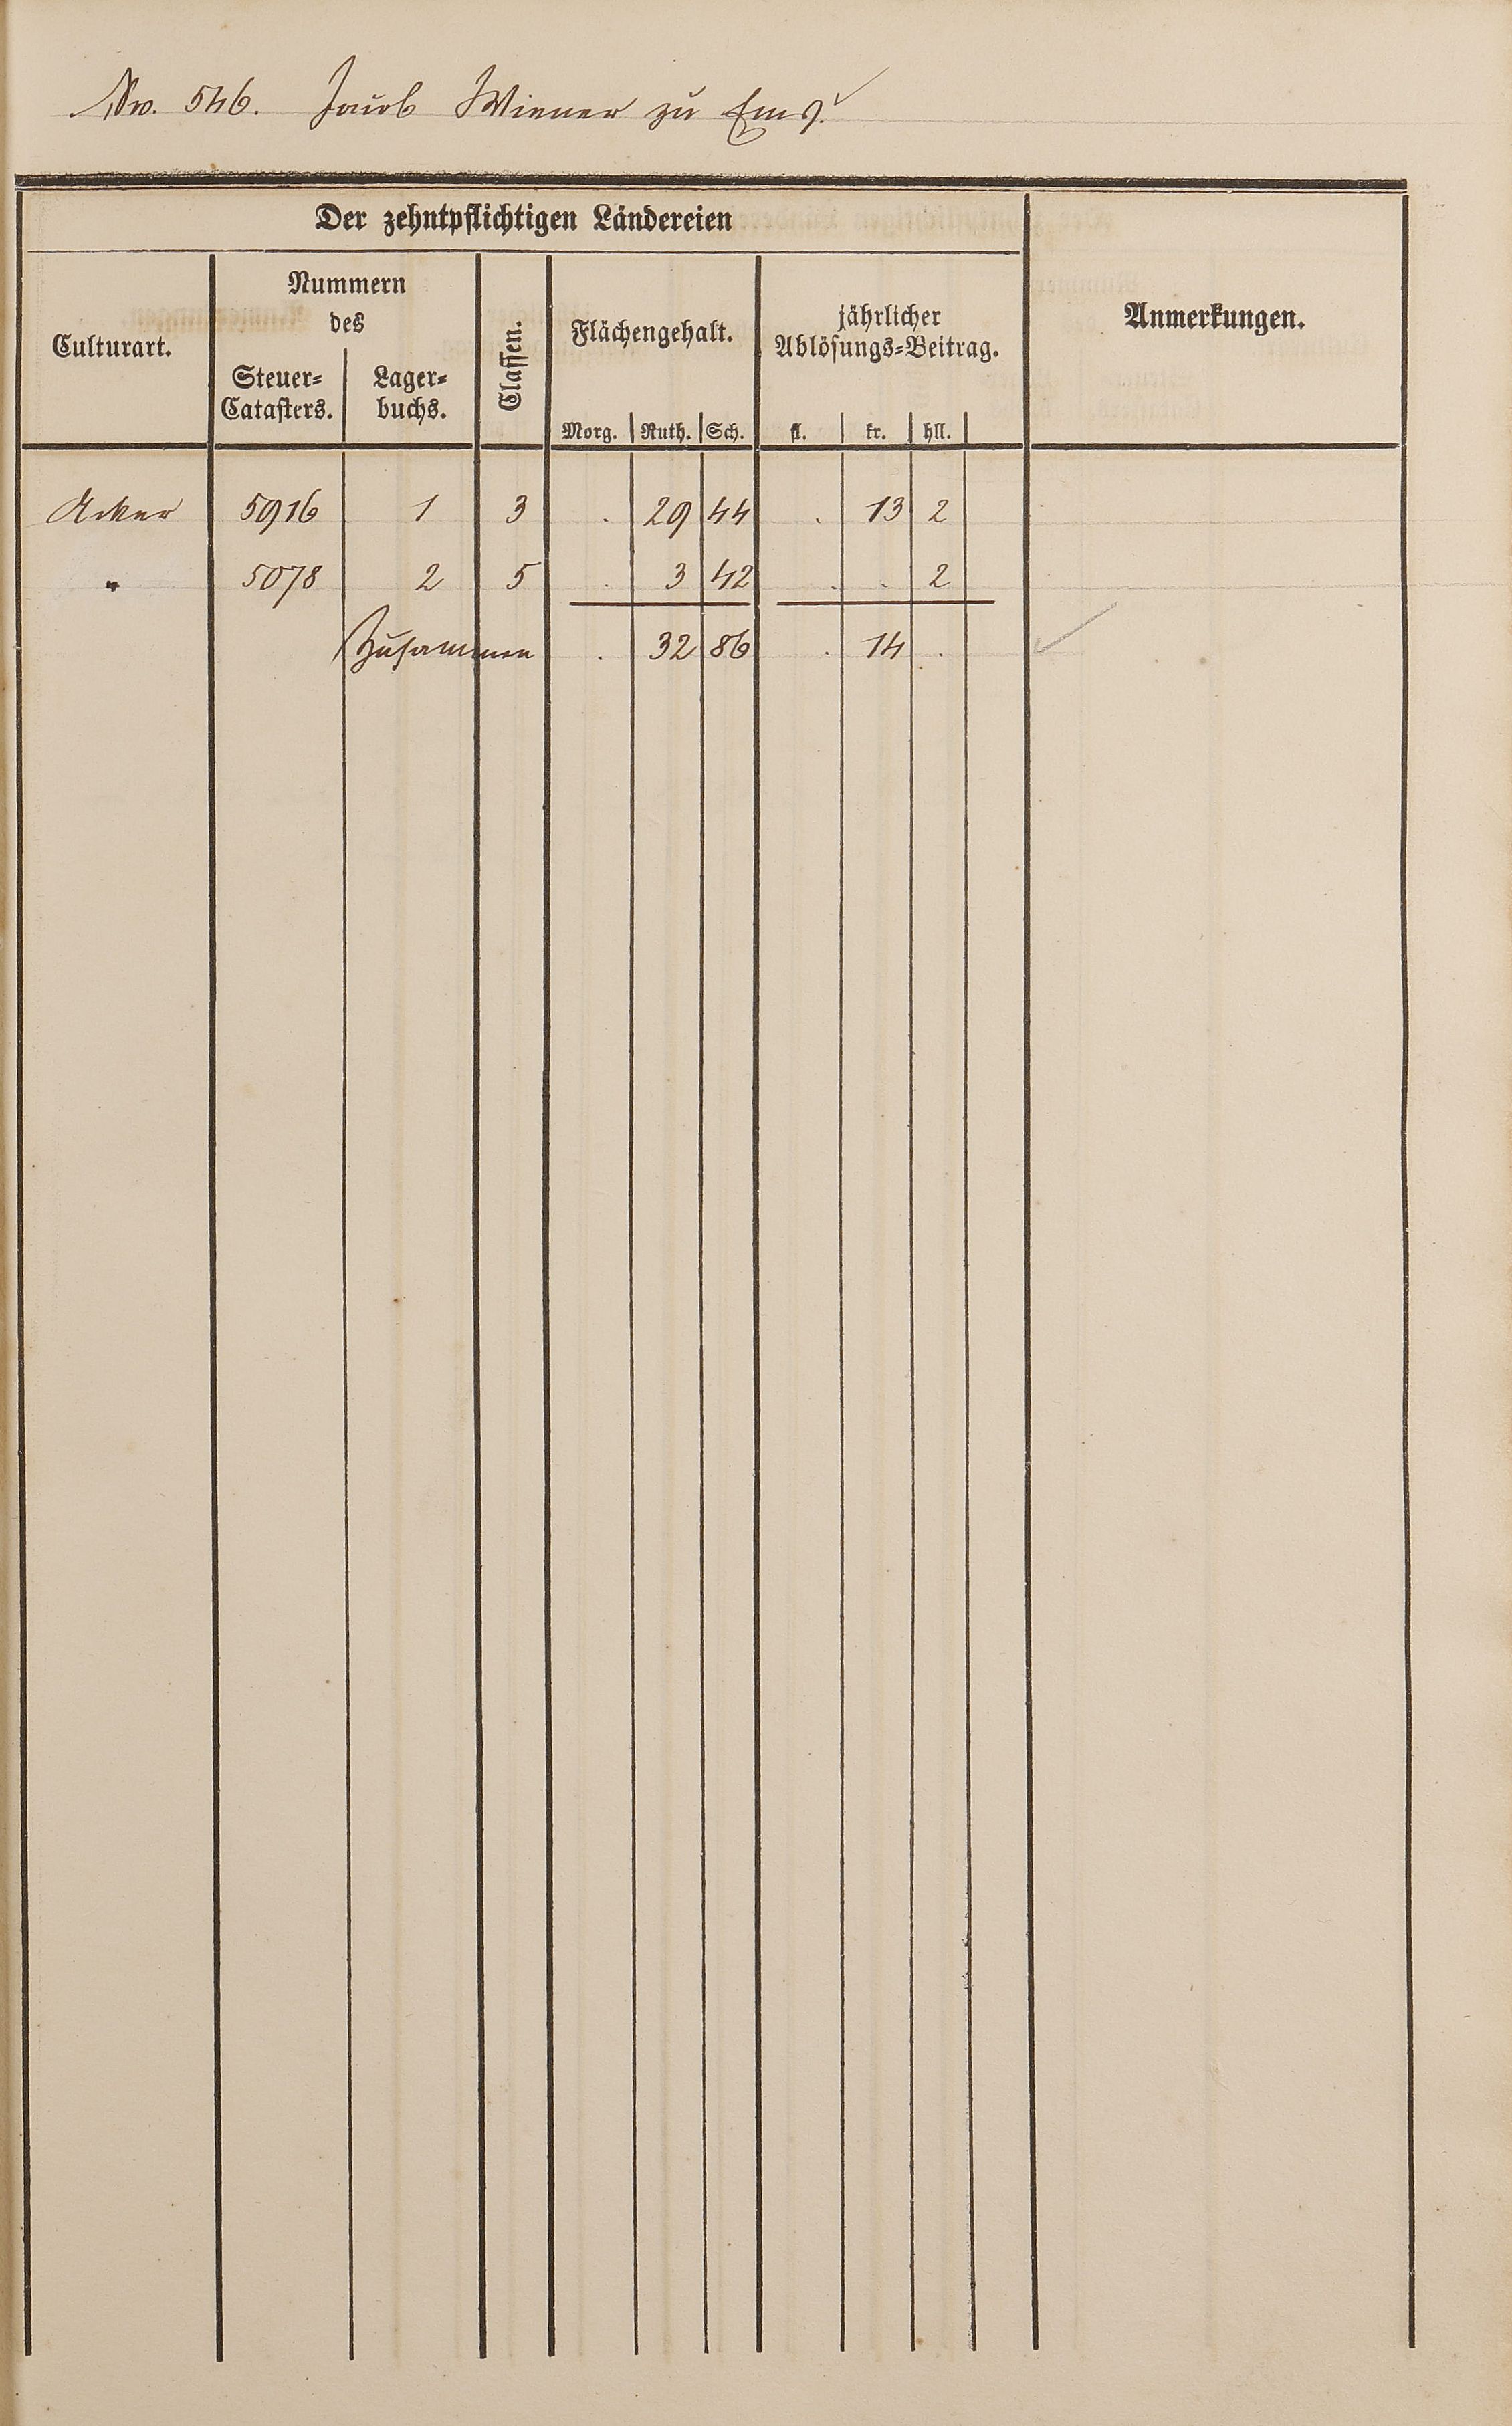 No. 546. Jacob Wiener zu Ems.
Der zehntpflichtigen Ländereien
Culturart.
Nummern
des
Steuer=
Catasters.
Lager=
buchs.
Classen.
Flächengehalt.
Morg. Ruth. Sch.
jährlicher
Ablösungs=Beitrag.
fl. kr. hll.
Anmerkungen.
Acker 5916 1 3 . 29 44 . 13 2
" 5078 2 5 . 3 42 . . 2
Zusammen . 32 86 . 14 .